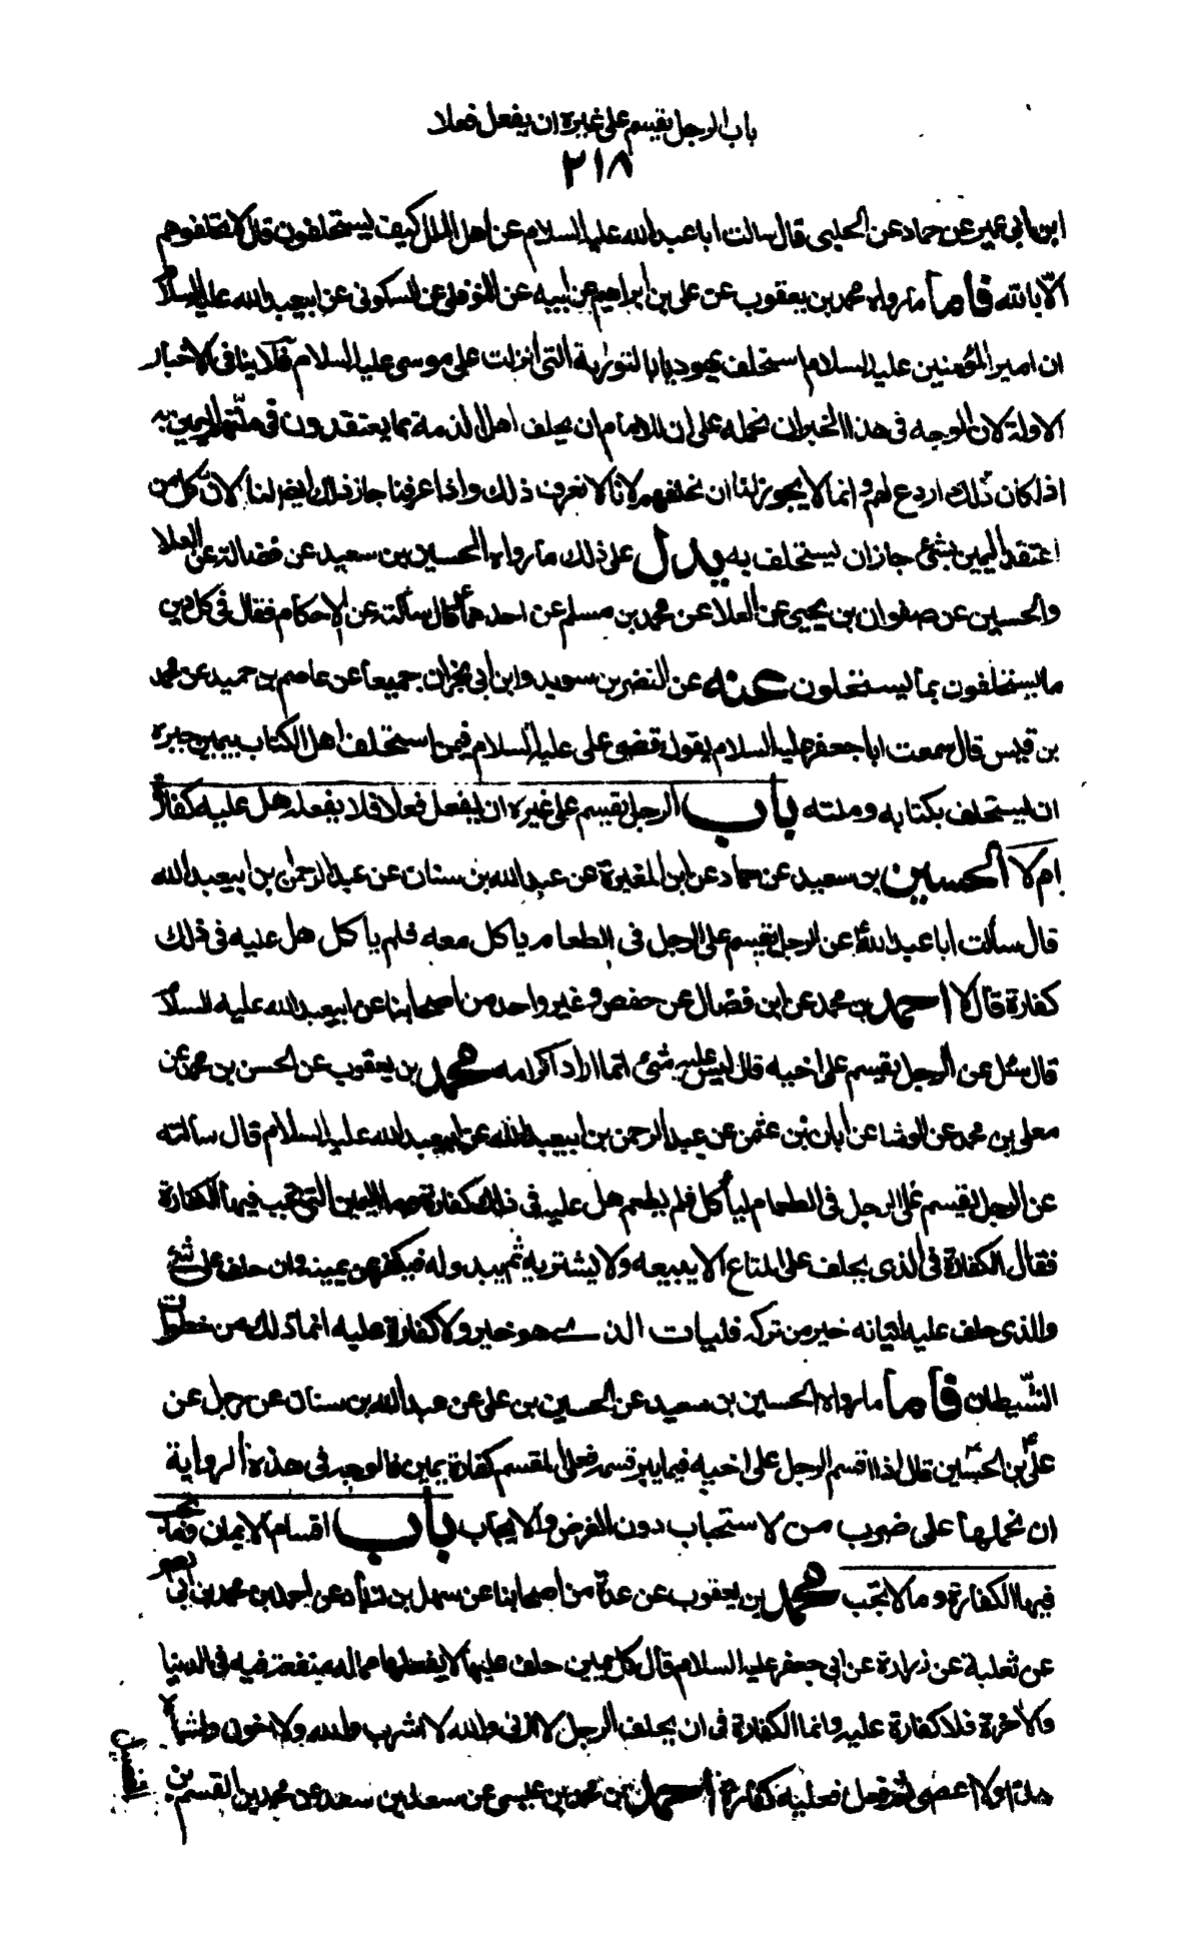 باب الرجل يقسم على غيره ان يفعل فعلا
٢١٨
ابن ابى عمير عن حماد عن الحلبى قال سالت ابا عبد الله عليه السلام عن اهل الملل كيف يستحلفون قال لا تحلفوهم
الّا بالله فاما ما رواه محمد بن يعقوب عن على بن ابراهيم عن ابيه عن النوفلى عن السكونى عن ابيعبد الله عليه السلام
ان امير المؤمنين عليه السلام استحلف يهوديا بالتورية التى انزلت على موسى عليه السلام فلا ينافى الاخبار
الاولة لان الوجه فى هذا الخبر ان نحمله على ان للامام ان يحلف اهل الذمة بما يعتقدون فى ملتهم اليمين به
اذا كان ذلك اردع لهم و انما لا يجوز لنا ان نحلفهم لانا لا نعرف ذلك واذا عرفنا جاز ذلك ايضا لنا لان كل من
اعتقد اليمين بشئ جاز ان يستحلف به يدل على ذلك ما رواه الحسين بن سعيد عن فضالة عن العلا
والحسين عن صفوان بن يحيى عن العلا عن محمد بن مسلم عن احدهما قال سالته عن الاحكام فقال فى كل دين
ما يستحلفون بما يستحلون عنه عن النضر بن سويد وابن ابى نجران جميعا عن عاصم بن حميد عن محمد
بن قيس قال سمعت ابا جعفر عليه السلام يقول قضى على عليه السلام فيمن استحلف اهل الكتاب بيمين صبره
ان يستحلف بكتابه وملته باب الرجل يقسم على غيره ان يفعل فعلا فلا يفعله هل عليه كفارة
ام لا الحسين بن سعيد عن حماد عن ابن المغيرة عن عبد الله بن سنان عن عبد الرحمن بن ابيعبد الله
قال سألت ابا عبد الله عن الرجل يقسم على الرجل فى الطعام يأكل معه فلم يأكل هل عليه فى ذلك
كفارة قال لا احمد بن محمد عن ابن فضال عن حفص و غير واحد من اصحابنا عن ابيعبد الله عليه السلام
قال سئل عن الرجل يقسم على اخيه قال ليس عليه شئ انما اراد اكرامه محمد بن يعقوب عن الحسن بن محمد عن
معلى بن محمد عن الوشا عن ابان بن عثمن عن عبد الرحمن بن ابيعبد الله عن ابيعبد الله عليه السلام قال سألته
عن الرجل يقسم على الرجل فى الطعام ليأكل فلم يطعم هل عليه فى ذلك كفارة وما اليمين التى تجب فيها الكفارة
فقال الكفارة فى الذى يحلف على المتاع الا يبيعه ولا يشتريه ثم يبدو له فيكفر عن يمينه وان حلف على شئ
والذى حلف عليه اتيانه خير من تركه فليات الذى هو خير ولا كفارة عليه انما ذلك من خطوات
الشّيطان فاما ما رواه الحسين بن سعيد عن الحسين بن على عن عبد الله بن سنان عن رجل عن
على بن الحسين قال اذا اقسم الرجل على اخيه فيما يبر قسمه فعلى المقسم كفارة يمين فالوجه فى هذه الرواية
ان نحملها على ضرب من الاستحباب دون الفرض والايجاب باب اقسام الايمان وما تجب
فيها الكفارة وما لا تجب محمد بن يعقوب عن عدة من اصحابنا عن سهل بن زياد عن احمد بن محمد بن ابى نصر
عن ثعلبة عن زرارة عن ابى جعفر عليه السلام قال كل يمين حلف عليها لا يفعلها مما له منفعة فيه فى الدنيا
والاخرة فلا كفارة عليه وانما الكفارة فى ان يحلف الرجل لا ازنى والله لا اشرب والله ولا اخون واشباه
هذا ولا اعصى ثم فعل فعليه كفارة احمد بن محمد بن عيسى عن سعد بن سعد عن محمد بن القسم بن